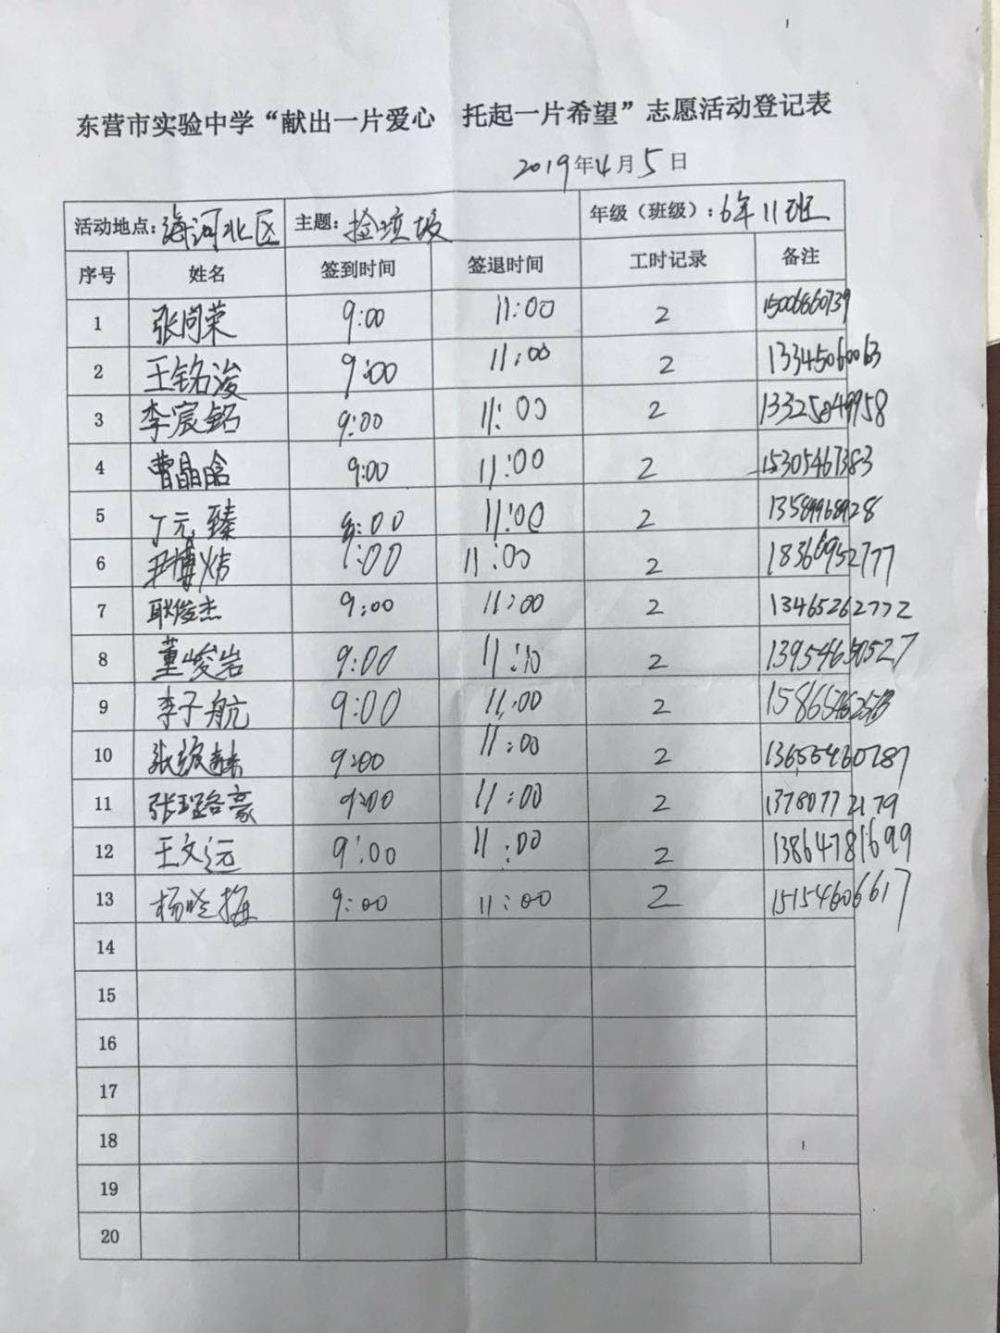 东营市实验中学“献出一片爱心 托起一片希望”志愿活动登记表
2019年4月5日
活动地点：海河北区 主题：捡垃圾 年级（班级）：6年11班
序号 姓名 签到时间 签退时间 工时记录 备注
1 张尚荣 9:00 11:00 2 15006860739
2 王铭浚 9:00 11:00 2 13345060063
3 李宸铭 9:00 11:00 2 13325049958
4 曹晶晗 9:00 11:00 2 15305467383
5 丁元臻 9:00 11:00 2
6 尹博炜 9:00 11:00 2 18366952777
7 耿俊杰 9:00 11:00 2 13465262772
8 董峻岩 9:00 11:10 2 13954650527
9 李子航 9:00 11:00 2
10 张 9:00 11:00 2 13655460787
11 张 豪 9:00 11:00 2 13780772179
12 王文远 9:00 11:00 2 13864781699
13 杨 梅 9:00 11:00 2 15154606617
14
15
16
17
18
19
20